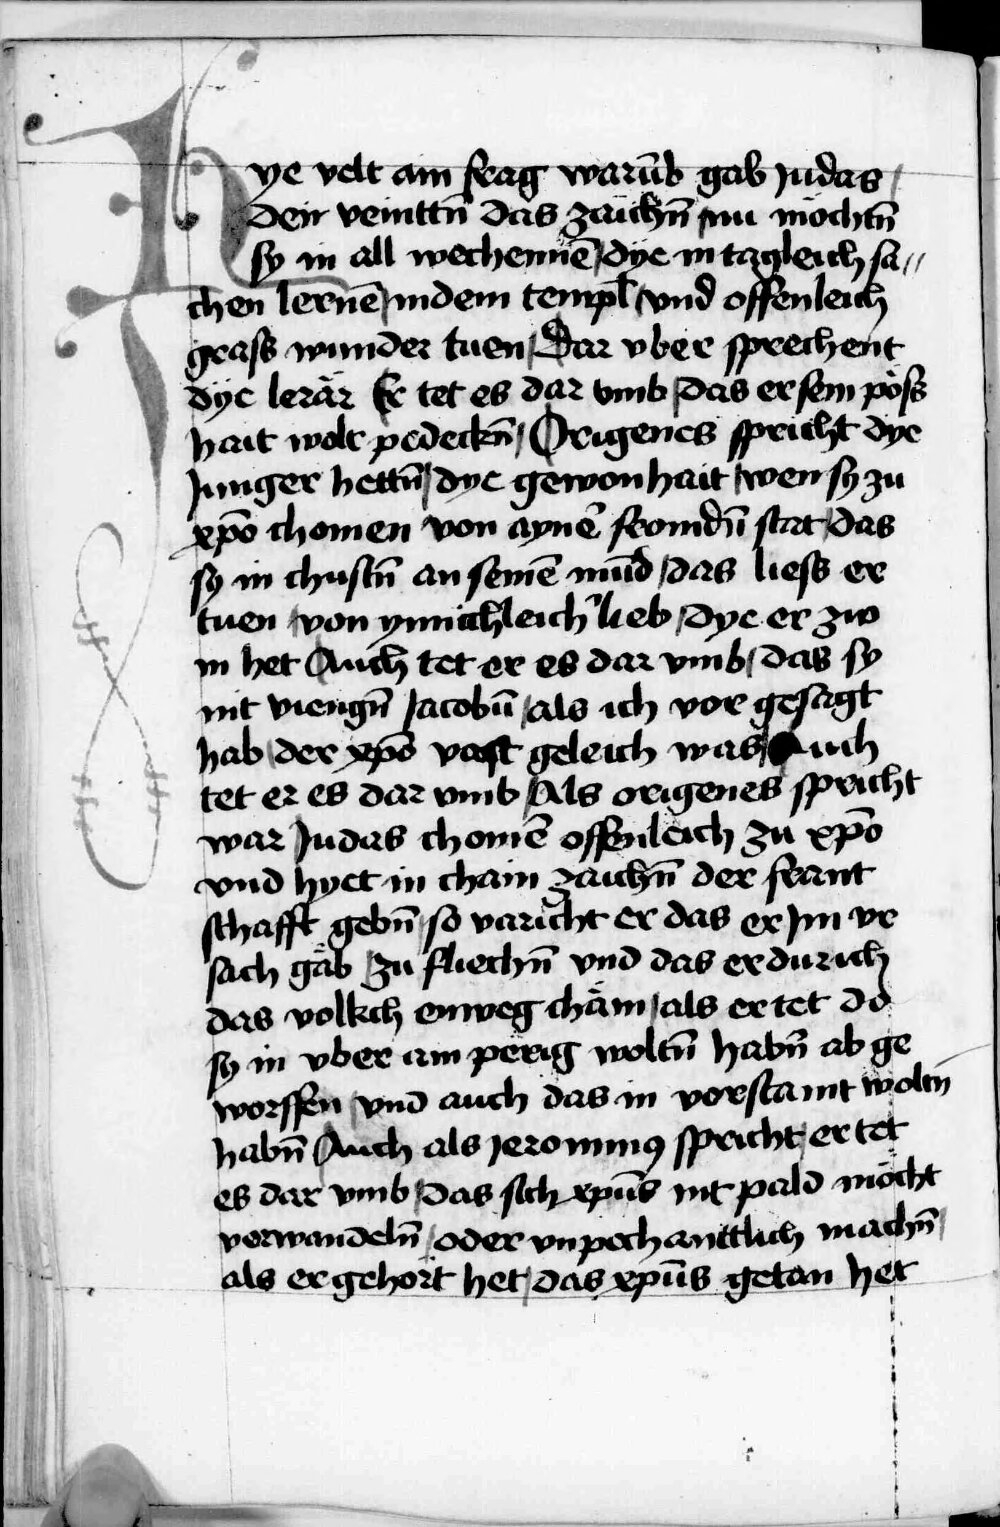 Hye velt ain frag warūb gab Judas /
den veinttn̄ das zaichn̄ / nu möchtn̄
sy in all wechennē / dye in tagleich sa//
chen lernē / in dem templ̄ / vnd offenleich
grass wunder tuen / Dar vber sprechent
dye lerär Er tet es dar vmb / das er sein pöss
hait wolt pedeckn̄ / Origenes spricht dye
Junger hettn̄ / dye gewonhait / wen sy zu
xp̄o chomen von aynē fromdn̄ stat / das
sy in chustn̄ an seinē mūd / das liess er
tuen / von ynnichleich lieb / dye er zw
in het Auch tet er es dar vmb / das sy
nit viengn̄ Jacobū / als ich vor gesagt
hab / der xp̄o vast geleich was / Auch
tet er es dar vmb / Als origenes spricht
war Judas chomē offenleich zu xp̄o
vnd hyet in chain zaichn̄ der frant
schafft gebn̄ / so varicht er das er Jm vr
sach gäb / zu fliechn̄ vnd das er durich
das volkch enweg chäm / als er tet do
sy in vber ain perig woltn̄ habn̄ ab ge
worffen / vnd auch das in vorstamt woltn̄
habn̄ Auch als Jeronimus spricht / er tet
es dar vmb / das sich xp̄us nit pald möcht
verwandeln̄ / oder vnpechanttlich machn̄ /
als er gehort het / das xp̄us getan het